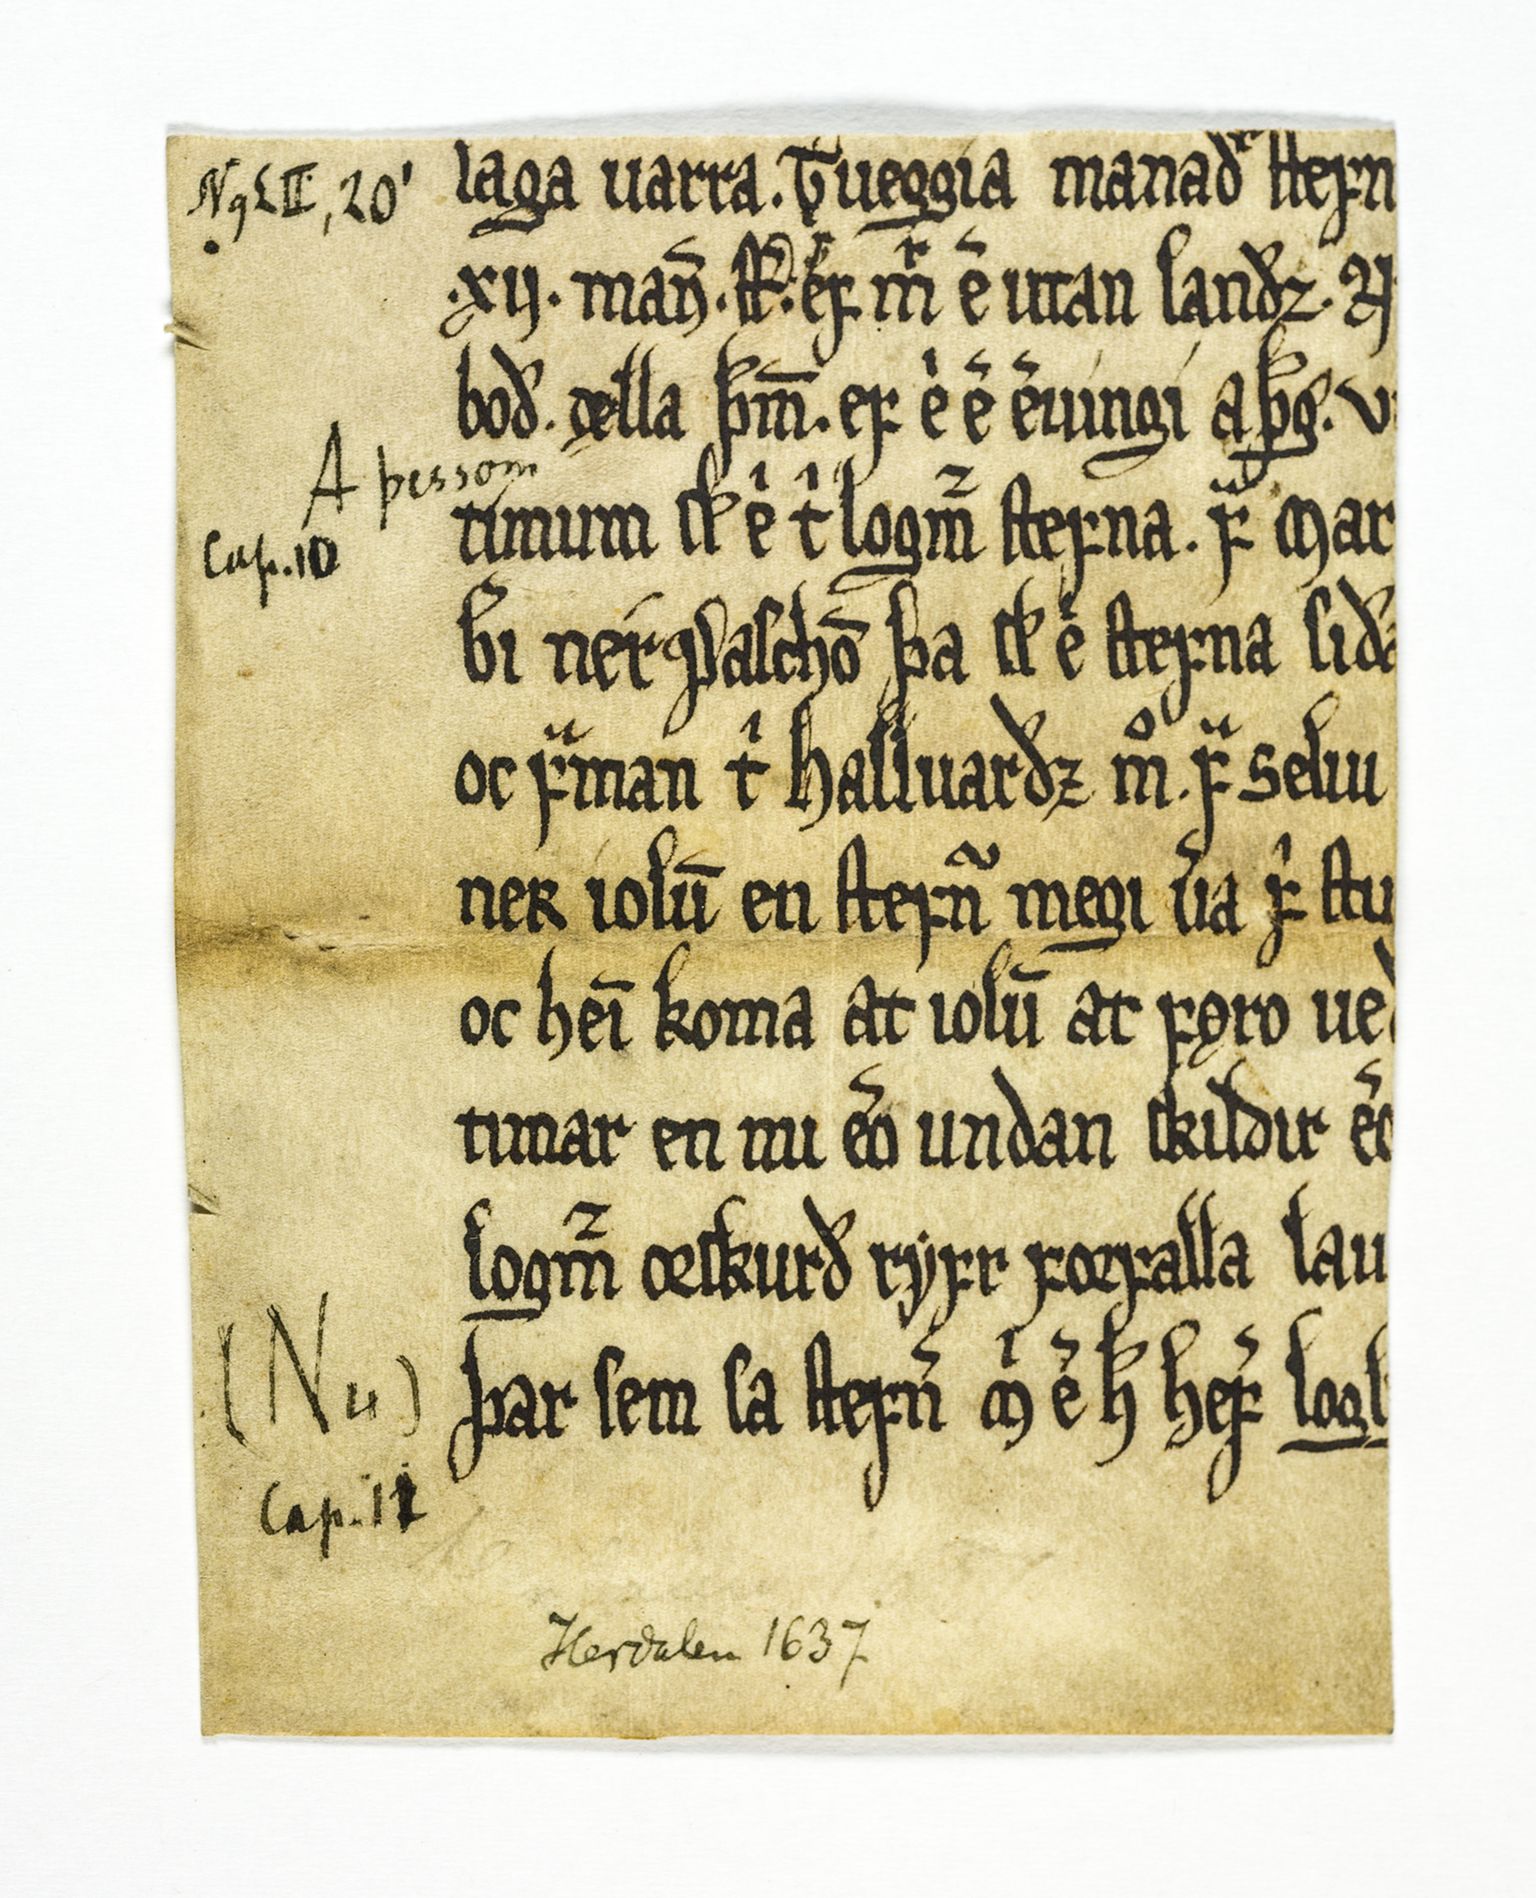 NgL II, 20'
laga uarra. Tueggia manað stefn
.xij. man̄. ef m̄ e͛ utan landz.
boð. œlla þm̄. ef e͛ e͛uingi a þg.
A þessom
timum sk e͛ t̉ logm̄ stefna. f̈ mar
Cap. 10
b̄i ner paschō þa sk e͛ stefna siða
oc f̈man t̉ halluardz m̊. f̈ seliu
ner iolū en stefn̄ megi u͛a f̉ stu
oc heī koma at iolū at fyro ueð
timar en nu e͛o undan skildir e͛o
logm̄ œskurð ryfr forfalla lau
(Nu) þar sem sa stefn̄ m̉ e͛ h hef͛ logl
Cap. 11
Herdalen 1637